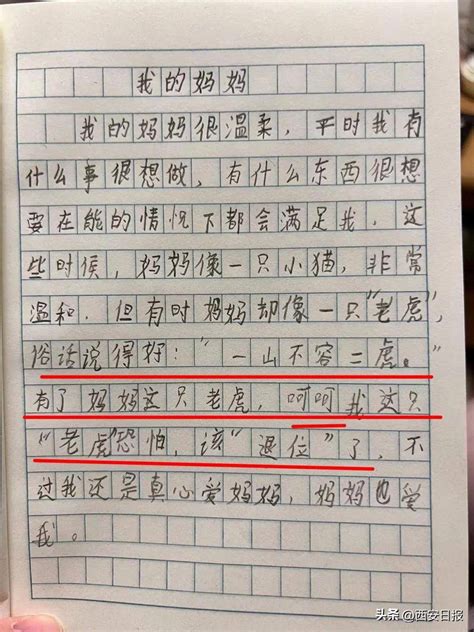 我的妈妈
我的妈妈很温柔，平时我有
什么事很想做，有什么东西很想
要在能的情况下都会满足我，这
些时候，妈妈像一只小猫，非常
温和，但有时妈妈却像一只“老虎”，
俗话说得好：“一山不容二虎。”
有了妈妈这只老虎，呵呵我这只
“老虎”恐怕，该“退位”了，不
过我还是真心爱妈妈，妈妈也爱
我。
头条 @西安日报